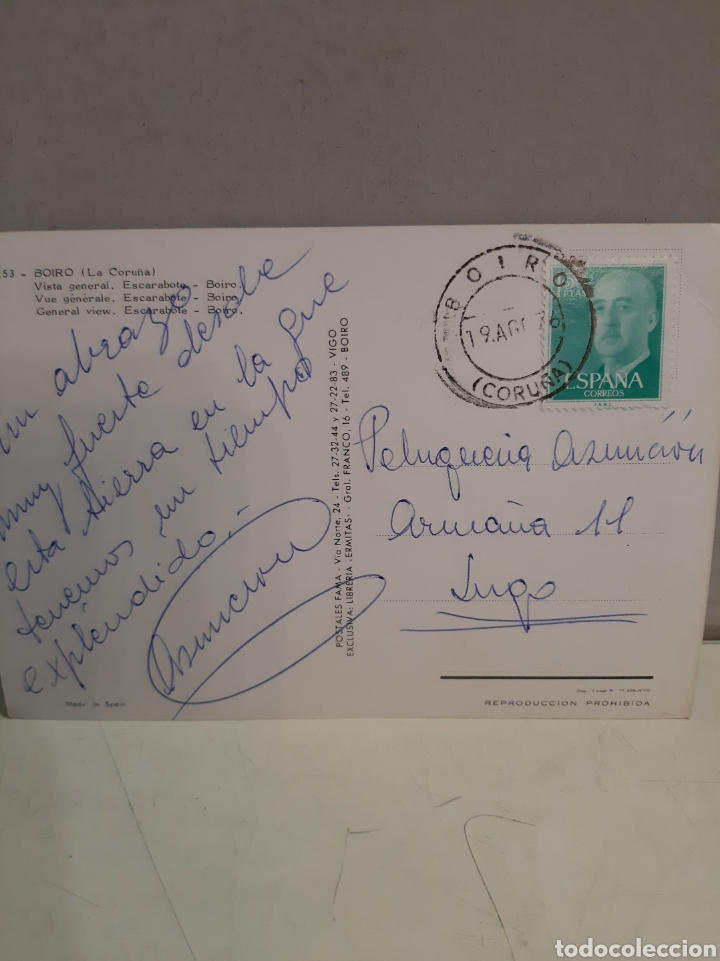 53 - BOIRO (La Coruña)
Vista general. Escarabote - Boiro.
Vue générale. Escarabote - Boiro.
General view. Escarabote - Boiro.
un abrazo
muy fuerte desde
esta tierra en la que
tenemos un tiempo
expléndido.-
Asunción
Made in Spain
POSTALES FAMA - Vía Norte, 24 - Tels. 27-32-44 y 27-22-83 - VIGO
EXCLUSIVA: LIBRERIA «ERMITAS» - Gral. FRANCO, 16 - Tel. 489 - BOIRO
BOIRO
19.AGO
(CORUÑA)
PTAS
ESPAÑA
CORREOS
Peluqueria Asunción
Armaña 11
Lugo
REPRODUCCION PROHIBIDA
todocoleccion